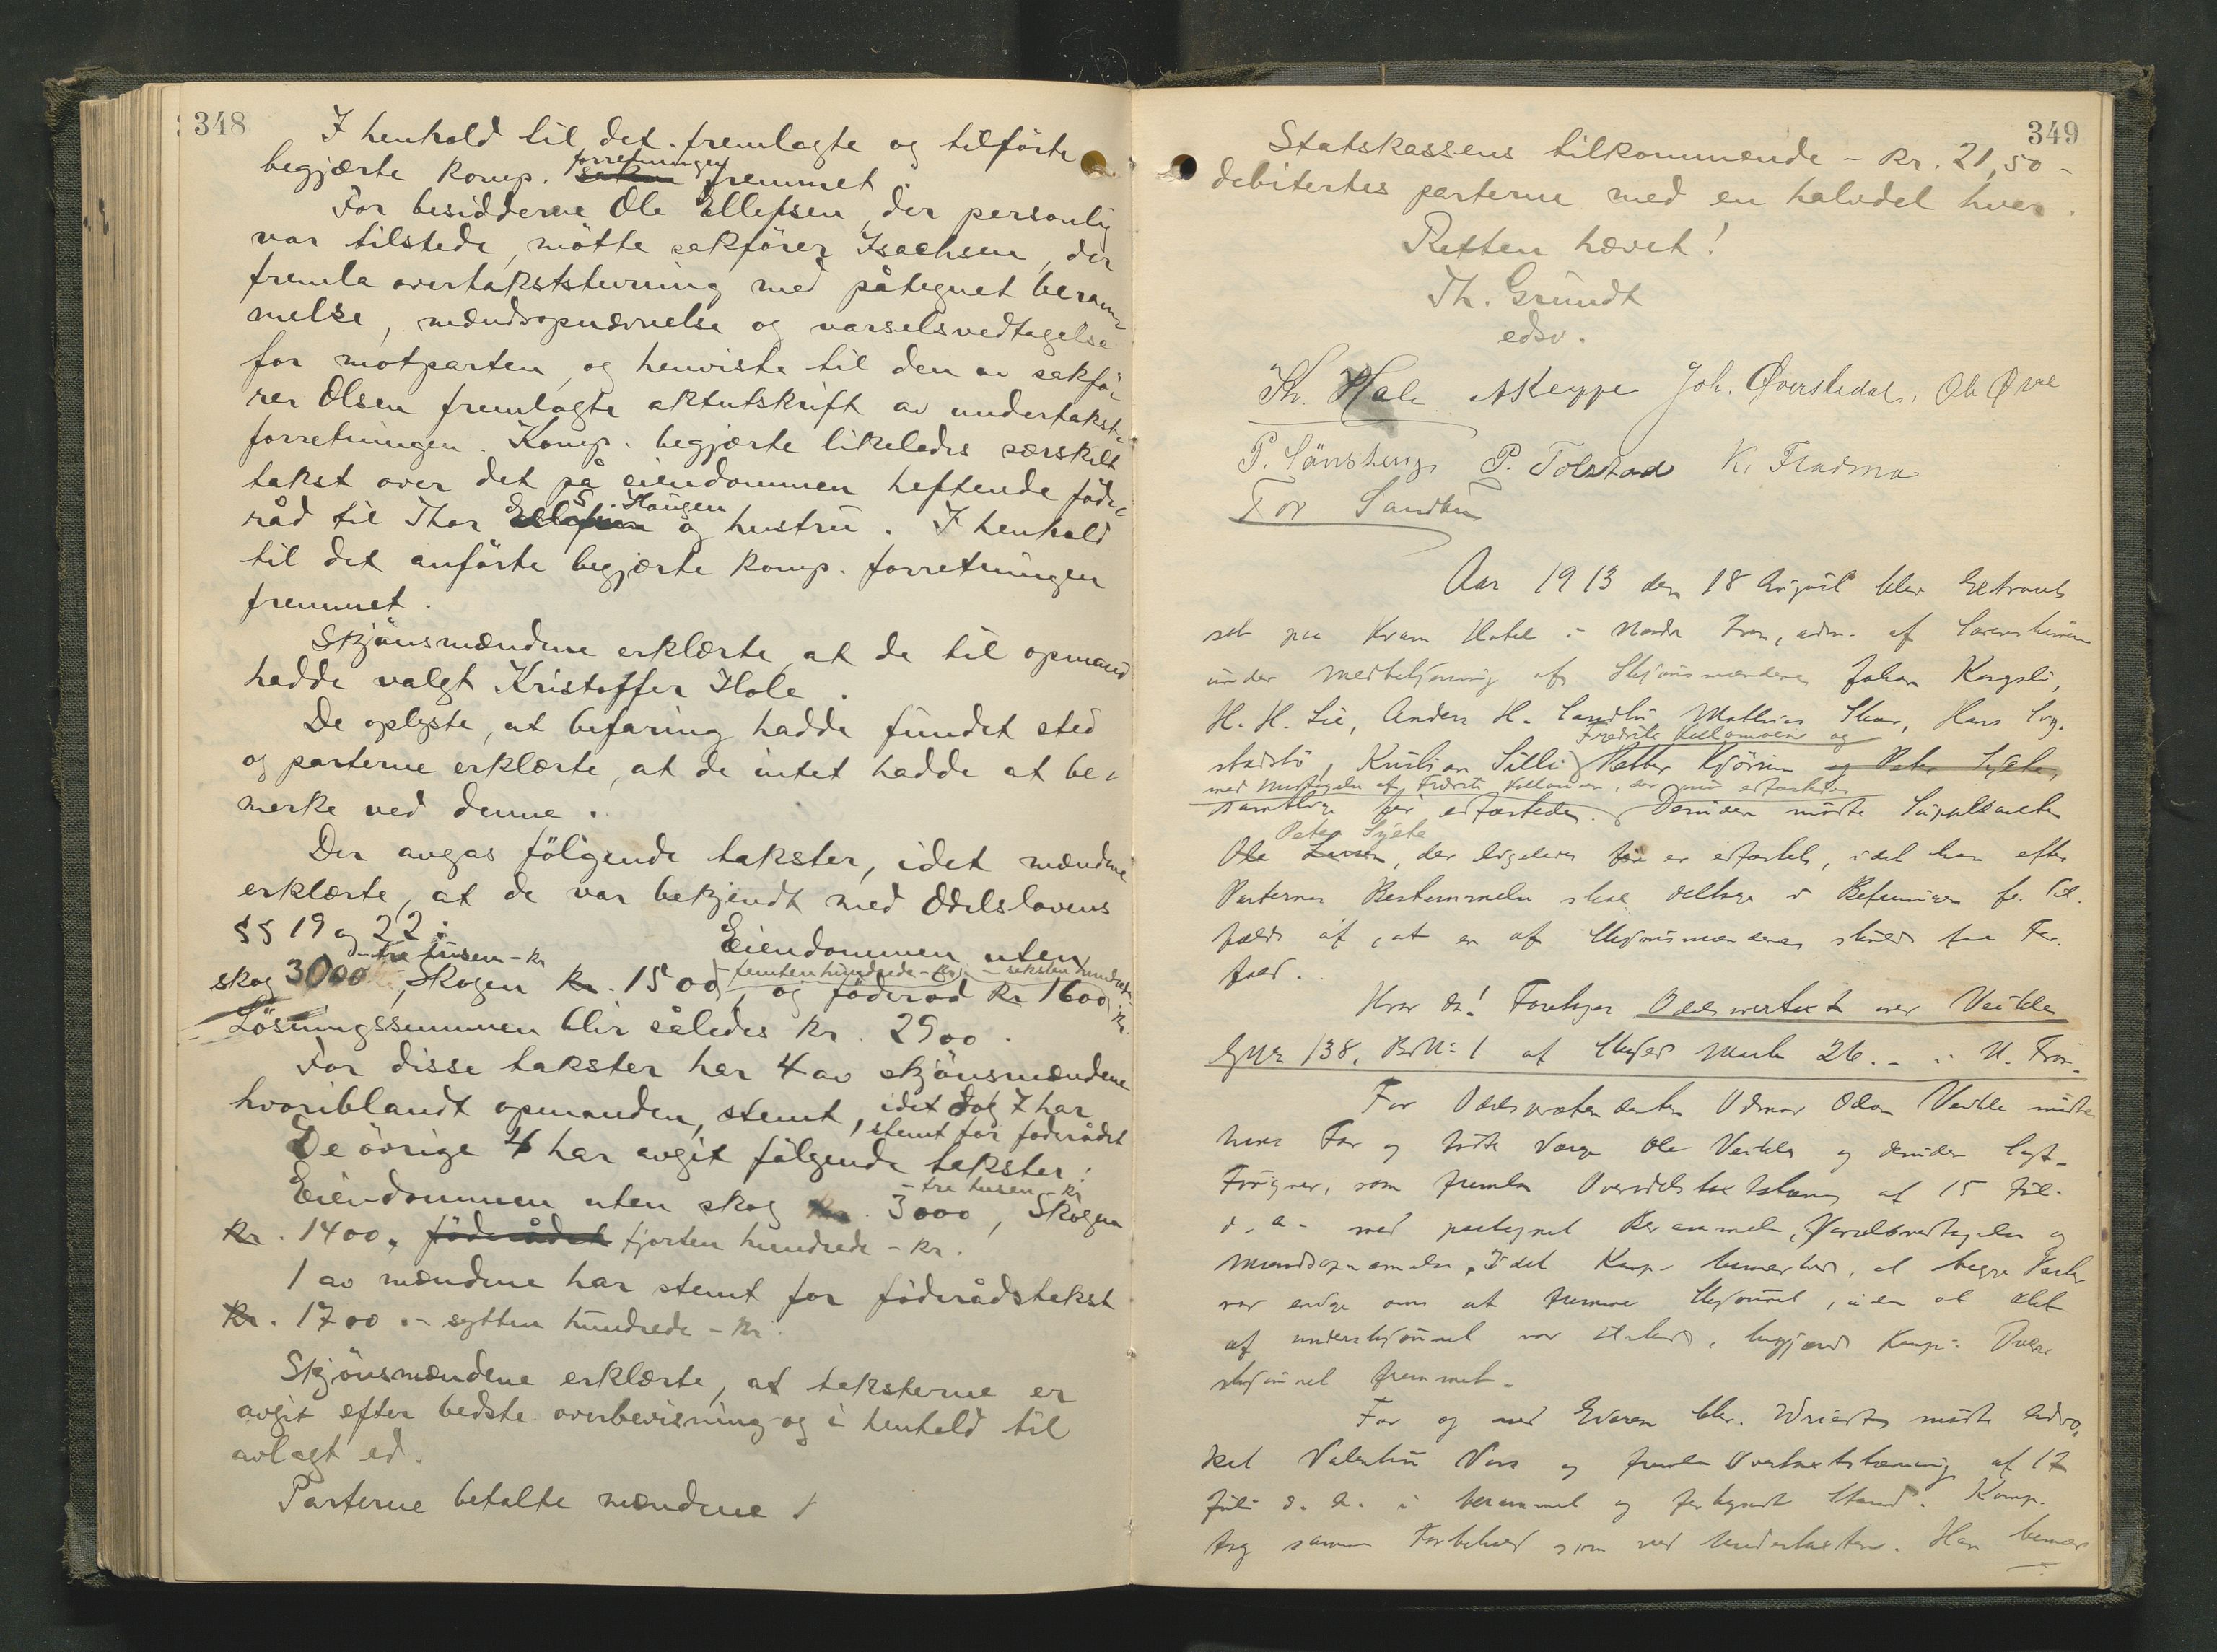 348
I henhold til det fremlagte og tilförte
begjærte komp. saken forretningen fremmet.
For besidderne Ole Ellefsen, der personlig
var tilstede, mötte sakförer Isachsen, der
fremla overtakststevning med påtegnet beram-
melse, mændsopnævnelse og varselsvedtagelse
for motparten, og henviste til den av sakfö-
rer Olsen fremlagte aktutskrift av undertakst-
forretningen. Komp. begjærte likeledes særskilt
takst over det på eiendommen heftende föde-
råd til Thor Ellefsen S. Haugen og hustru. I henhold
til det anförte begjærte komp. forretningen
fremmet.
Skjönsmændene erklærte, at de til opmand
hadde valgt Kristoffer Hole.
De oplyste, at befaring hadde fundet sted
og parterne erklærte, at de intet hadde at be-
merke ved denne.
Der avgas fölgende takster, idet mændene
erklærte, at de var bekjendt med Odelslovens
§§ 19 og 22: Eiendommen uten
- tre tusen - kr - femtenhundrede - kr - seksten hundrede - kr.
skog 3000, skogen kr. 1500, og föderåd kr 1600
Lösningssummen blir således kr. 2900.
For disse takster har 4 av skjönsmændene
hvoriblandt opmanden, stemt, idet dog 7 har
stemt for föderådet
De övrige 4 har avgit fölgende takster:
- tre tusen - kr
Eiendommen uten skog kr. 3000, Skogen
kr. 1400, föderådet fjorten hundrede - kr.
1 av mændene har stemt for föderådstakst
kr. 1700 - sytten hundrede - kr.
Skjönsmændene erklærte, at taksterne er
avgit efter bedste overbevisning og i henhold til
avlagt ed.
Parterne betalte mændene
349
Statskassens tilkommende - kr. 21,50 -
debitertes parterne med en halvdel hver.
Retten hævet!
Th. Grundt
edsv.
Kr. Hole A Kleppe Joh. Øverstedal. Ole Øvre
P. Sönsteng P. Tolstad K. Fladmo
Tor Sandbu
Aar 1913 den 18 August blev Extraret
sat paa Kvam Hotel i Nordre Fron, adm. af Sorenskriveren
under Medbetjening af Skjønsmændene Johan Kongsli,
H. H. Lie, Anders H. Sandbu, Mathias Skar, Hans Syg-
Fredrik Kollomoen og
stadslö, Kristian Sylli, Petter Kjörum og Peter Sylte,
med Undtagelse af Fredrik Kollomoen, der nu edfæstedes
samtlige før edfæstede. Desuden mødte Suppleanten
Peter Sylte
Ole Larsen, der ligeledes før er edfæstet, idet han efter
Parternes Bestemmelse skal deltage i Befaringen for Til-
fælde af, at en af Skjønsmændene skulde faa For-
fald.
Hvor da! Foretoges Odelsovertaxt over Veikle
Gno 138, Bno 1 af Skyld Mark 26. - i N. Fron.
For Odelsprætendenten Odmar Olsen Veikle mødte
hans Far og fødte Værge Ole Veikle og desuden Sagf.
Frisgner, som fremla Overodelstaxtstævning af 15 Juli
d. A. med paategnet Berammelse, Varselsvedtagelse og
Mændsopnævnelse. Idet Komp. bemærkede, at begge Parter
var enige om at fremme Skjønnet, uden at Akt
af underskjønnet var tilstede, begjærede Komp. Over-
skjønnet fremmet.
For og med Eieren Chr. Wriedt mødte Advo-
kat Valentin Voss og fremla Overtaxtstævning af 17
Juli d. A. i berammet og forkyndt Stand. Komp.
tog samme Forbehold som ved Undertaxten. Han bemær-